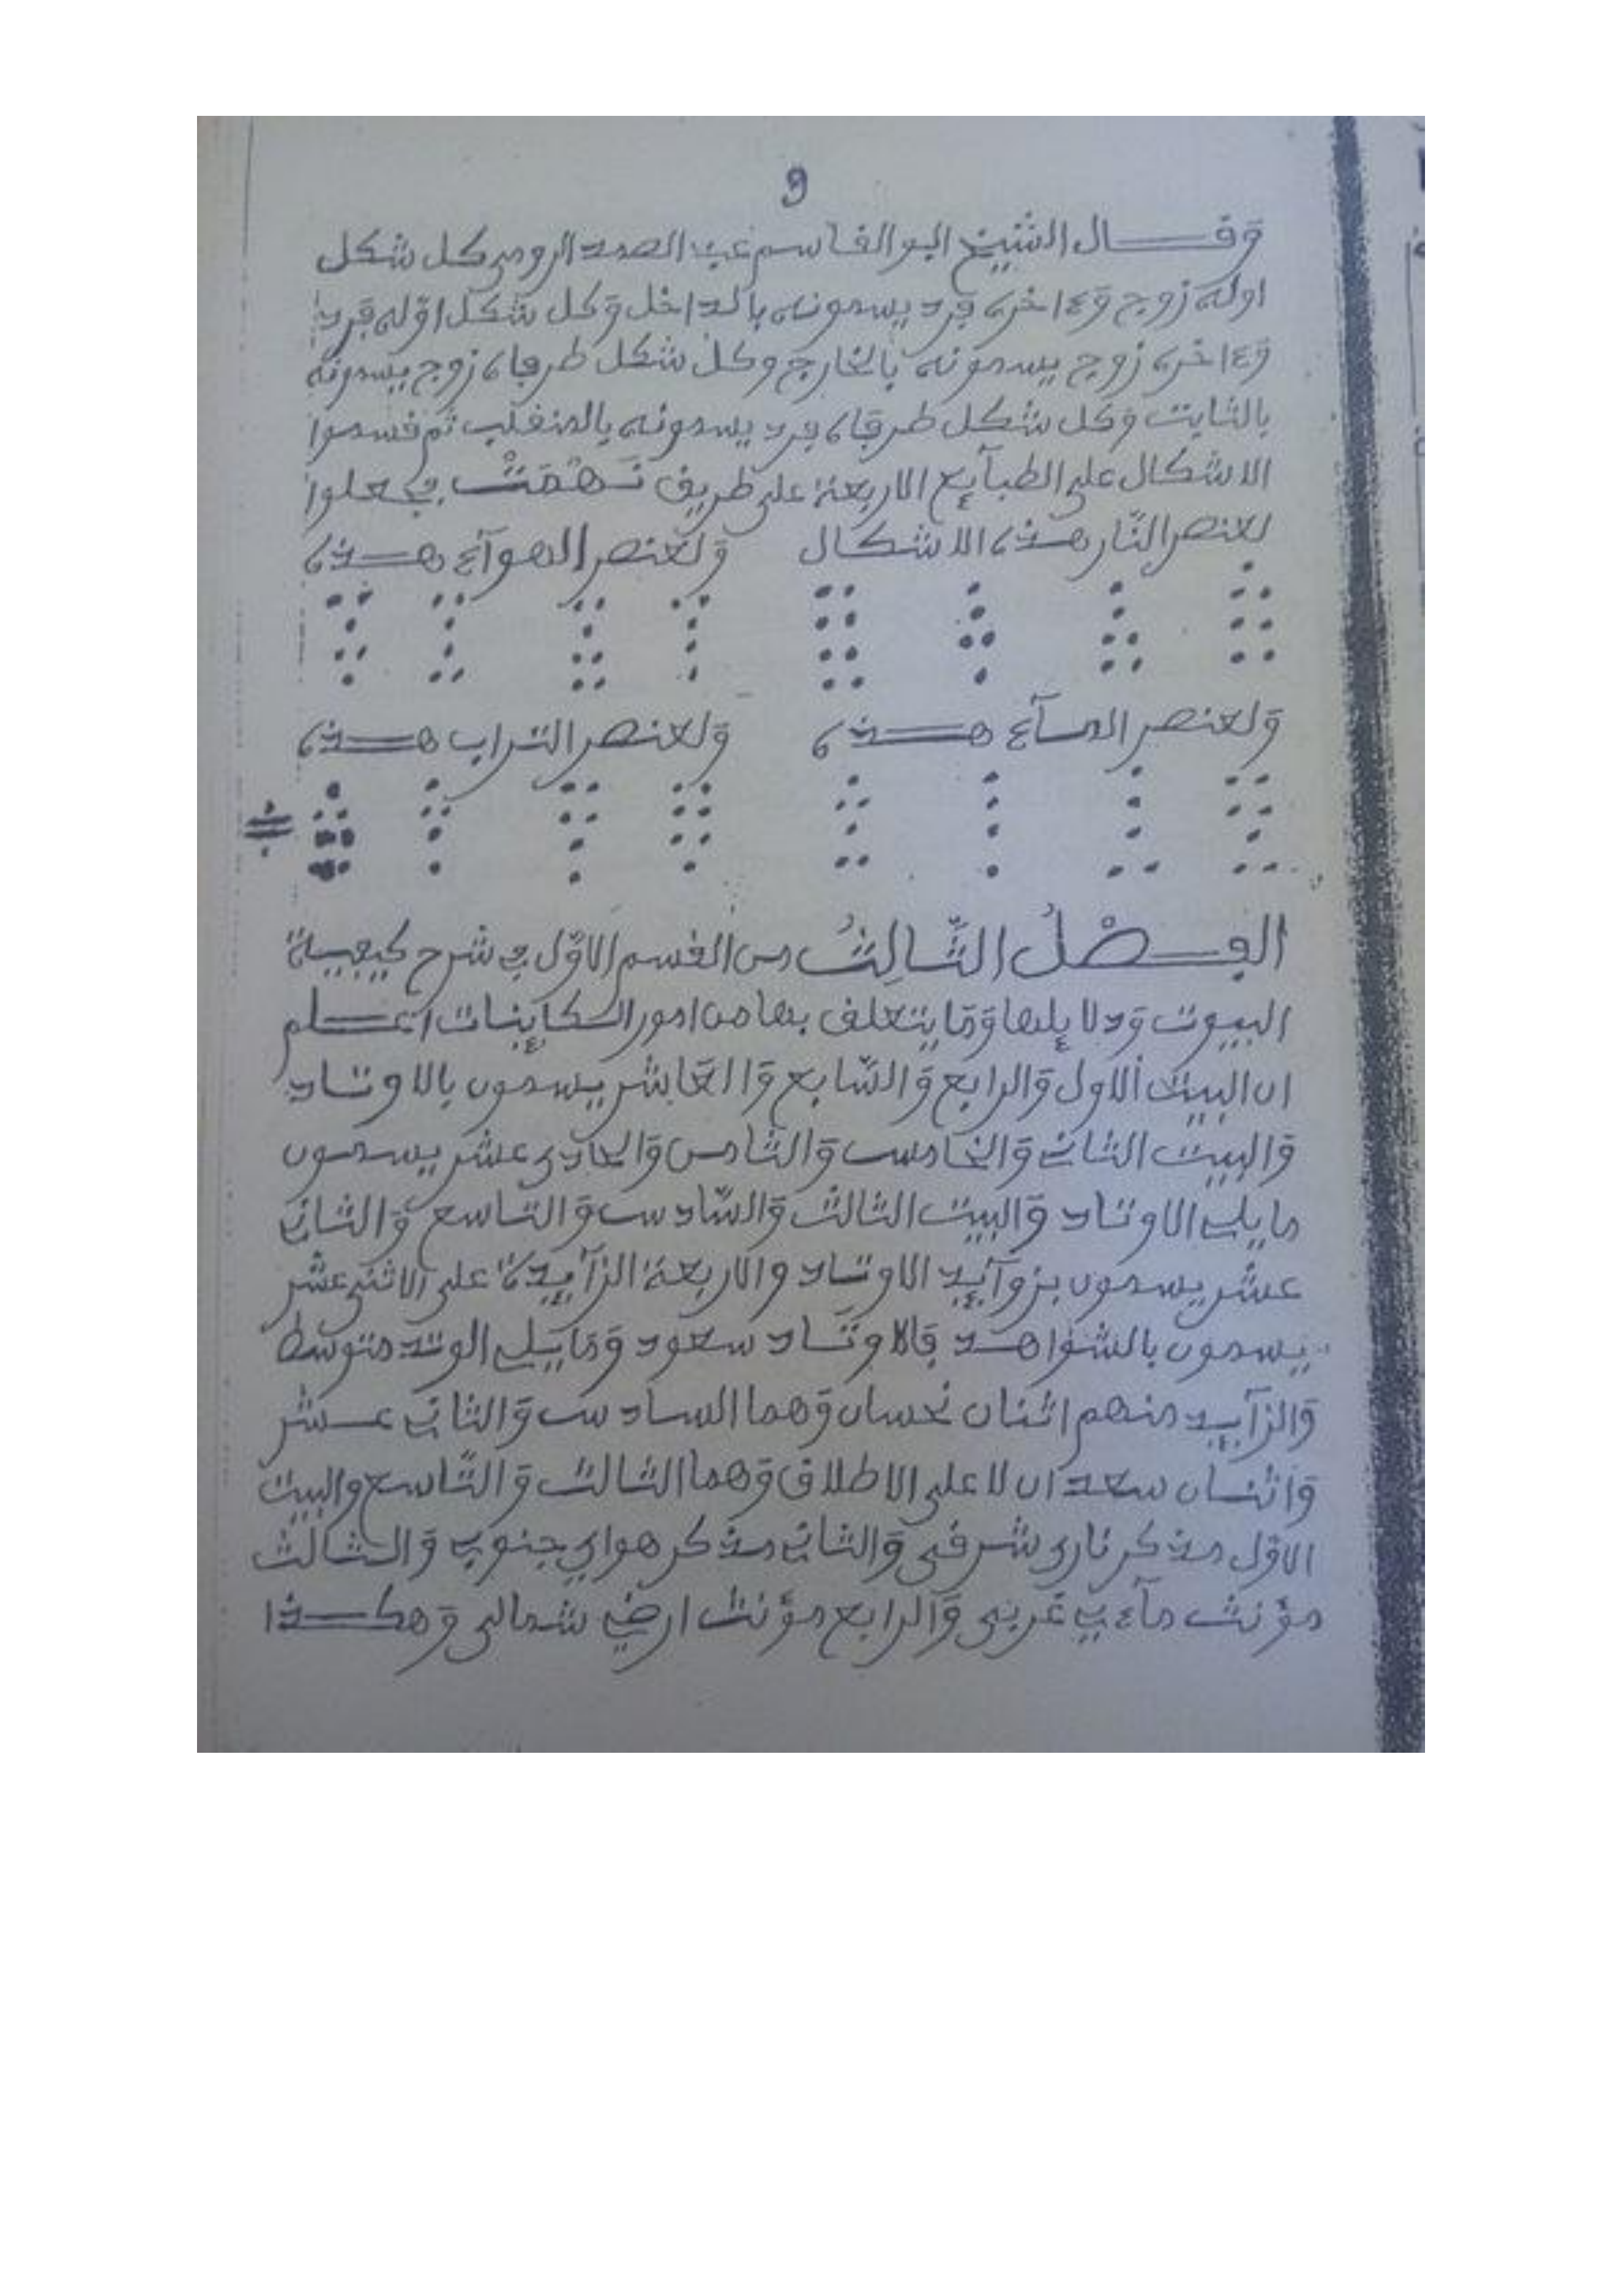 9
وقـــال الشيخ ابو القاسم عبد الصمد الرومي كل شكل
اوله زوج وءاخره فرد يسمونه بالداخل وكل شكل اوّله فرد
وءاخره زوج يسمونه بالخارج وكل شكل طرفاه زوج يسمونه
بالثابت وكل شكل طرفاه فرد يسمونه بالمنقلب ثم قسموا
الاشكال على الطبآيع الاربعة على طريق نَـهْمَتْ فجعلوا
لعنصر النّار هـذه الاشكال ولعنصر الهوآء هـذه
ولعنصر المـآء هـذه ولعنصر التراب هـذه
الفـصْلُ الثّالِثُ من القسم الاوّل في شرح كيفية
البيوت ودلايلها وما يتعلق بها من امور الكاينات اعـلم
ان البيت الاول والرابع والسّابع والعاشر يسمون بالاوتـاد
والبيت الثاني والخامس والثامن والحادي عشر يسمون
مايلي الاوتـاد والبيت الثالث والسّادس والتاسع والثاني
عشر يسمون بزوآيد الاوتـاد والاربعة الزآيدة على الاثني عشر
يسمون بالشواهـد فالاوتـاد سعود ومايـلي الوتد متوسط
والزآيـد منهم اثنان نحسان وهما السادس والثاني عـشر
واثنـان سعدان لا على الاطلاق وهما الثالث والتّاسع والبيت
الاوّل مذكر ناري شرقي والثاني مذكر هواي جنوبي والـثالث
مؤنث مآءي غربي والرابع مؤنث ارضي شمالي وهكـذا